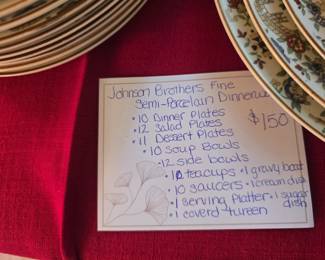 Johnson Brothers Fine
Semi-Porcelain Dinnerware
• 10 Dinner Plates
• 12 Salad Plates
• 11 Dessert Plates
$150
• 10 Soup Bowls
• 12 side bowls
• 10 teacups • 1 gravy boat
• 10 saucers • 1 cream dish
• 1 serving platter • 1 sugar dish
• 1 coverd tureen